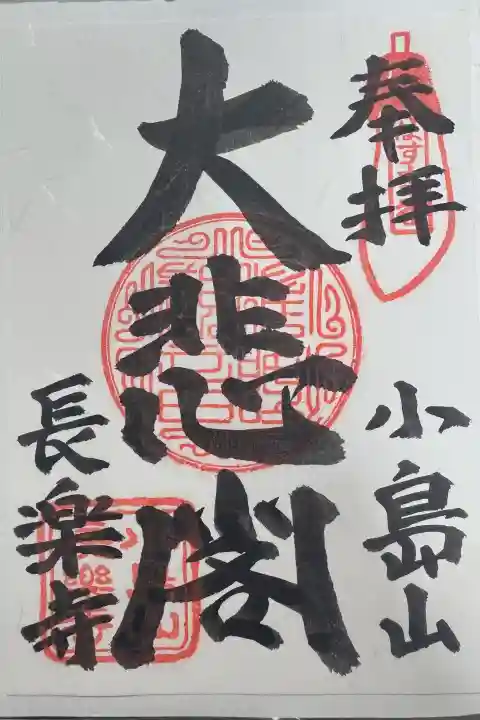 奉拝
小島山
大悲閣
長楽寺